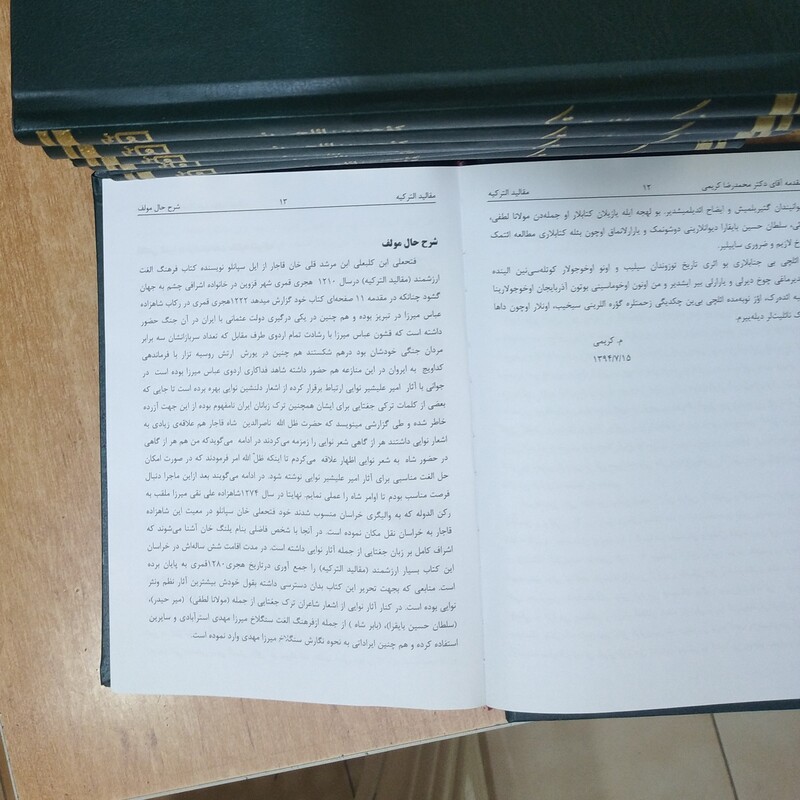 مقدمه آقای دکتر محمدرضا کریمی ۱۲ مقالید الترکیه
گتیریلمیش و ایضاح ائدیلمیشدیر. بو لهجه ایله یازیلان کتابلار او جمله‌دن مولانا لطفی،
سلطان حسین بایقارا دیوانلارینی دوشونمک و یارارلانماق اوچون بئله کتابلاری مطالعه ائتمک
لازیم و ضروری ساییلیر.
ائلچی بی جنابلاری بو اثری تاریخ توزوندان سیلیب و اونو اوخوجولار کوتله‌سی‌نین الینده
چوخ دیرلی و یارارلی بیر ایشدیر و من اونون اوخوماسینی بوتون آذربایجان اوخوجولارینا
ائده‌رک، اؤز نوبه‌مده ائلچی بی‌ین چکدیگی زحمتلره گؤره اللرینی سیخیب، اونلار اوچون داها
نائلیت‌لر دیله‌ییرم.
م. کریمی
۱۳۹۴/۷/۱۵
مقالید الترکیه ۱۳ شرح حال مولف
شرح حال مولف
فتحعلی ابن کلبعلی ابن مرشد قلی خان قاجار از ایل سپانلو نویسنده کتاب فرهنگ الغت
ارزشمند (مقالید الترکیه) درسال ۱۲۱۰ هجری قمری شهر قزوین در خانواده اشرافی چشم به جهان
گشود چنانکه در مقدمه ۱۱ صفحه‌ای کتاب خود گزارش میدهد ۱۲۲۲هجری قمری در رکاب شاهزاده
عباس میرزا در تبریز بوده و هم چنین در یکی درگیری دولت عثمانی با ایران در آن جنگ حضور
داشته است که قشون عباس میرزا با رشادت تمام اردوی طرف مقابل که تعداد سربازانشان سه برابر
مردان جنگی خودشان بود درهم شکستند هم چنین در یورش ارتش روسیه تزار با فرماندهی
کداویچ به ایروان در این منازعه هم حضور داشته شاهد فداکاری اردوی عباس میرزا بوده است. در
جوانی با آثار امیر علیشیر نوایی ارتباط برقرار کرده از اشعار دلنشین نوایی بهره برده است تا جایی که
بعضی از کلمات ترکی جغتایی برای ایشان همچنین ترک زبانان ایران نامفهوم بوده از این جهت آزرده
خاطر شده و طی گزارشی مینویسد که حضرت ظل الله ناصرالدین شاه قاجار هم علاقه‌ی زیادی به
اشعار نوایی داشتند هر از گاهی شعر نوایی را زمزمه می‌کردند در ادامه می‌گویدکه من هم هر از گاهی
در حضور شاه به شعر نوایی اظهار علاقه می‌کردم تا اینکه ظل‌ّ الله امر فرمودند که در صورت امکان
حل الغت مناسبی برای آثار امیر علیشیر نوایی نوشته شود. در ادامه می‌گویند بعد ازاین ماجرا دنبال
فرصت مناسب بودم تا اوامر شاه را عملی نمایم. نهایتا در سال ۱۲۷۴شاهزاده علی نقی میرزا ملقب به
رکن الدوله که به والیگری خراسان منسوب شدند خود فتحعلی خان سپانلو در معیت این شاهزاده
قاجار به خراسان نقل مکان نموده است. در آنجا با شخص فاضلی بنام پلنگ خان آشنا می‌شوند که
اشراف کامل بر زبان جغتایی از جمله آثار نوایی داشته است. در مدت اقامت شش ساله‌اش در خراسان
این کتاب بسیار ارزشمند (مقالید الترکیه) را جمع آوری درتاریخ هجری۱۲۸۰قمری به پایان برده
است. منابعی که بجهت تحریر این کتاب بدان دسترسی داشته بقول خودش بیشترین آثار نظم ونثر
نوایی بوده است. در کنار آثار نوایی از اشعار شاعران ترک جغتایی از جمله (مولانا لطفی) (میر حیدر)،
(سلطان حسین بایقرا)، (بابر شاه ) از جمله ازفرهنگ الغت سنگلاخ میرزا مهدی استرآبادی و سایرین
استفاده کرده و هم چنین ایراداتی به نحوه نگارش سنگلاخ میرزا مهدی وارد نموده است.